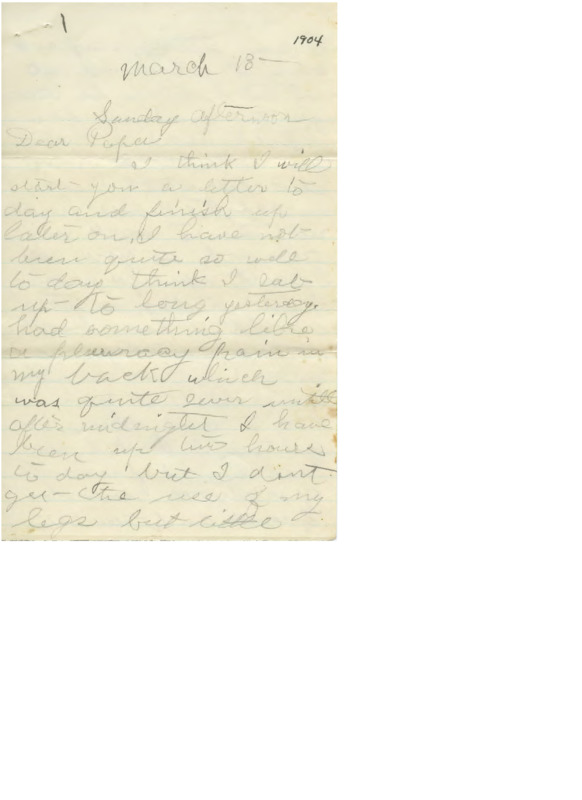 1904
March 18 —
Sunday afternoon
Dear Papa
I think I will
start you a letter to
day and finish up
later on, I have not
been quite so well
to day think I sat
up to long yesterday.
had something like
a pleuracy pain in
my back which
was quite sever untill
after midnight I have
been up two hours
to day but I dont
get the use of my
legs but little